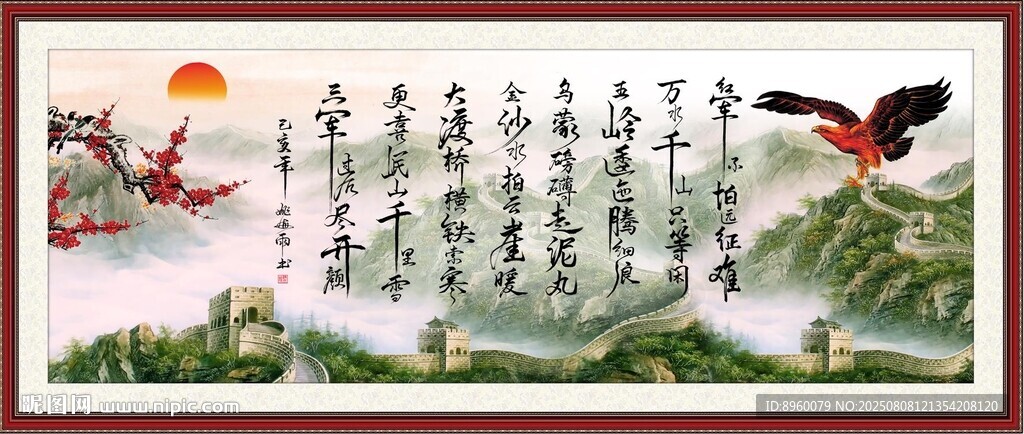 红军不怕远征难
万水千山只等闲
五岭逶迤腾细浪
乌蒙磅礴走泥丸
金沙水拍云崖暖
大渡桥横铁索寒
更喜岷山千里雪
三军过后尽开颜
己亥年 雨书
昵图网 www.nipic.com
ID:8960079 NO:20250808121354208120